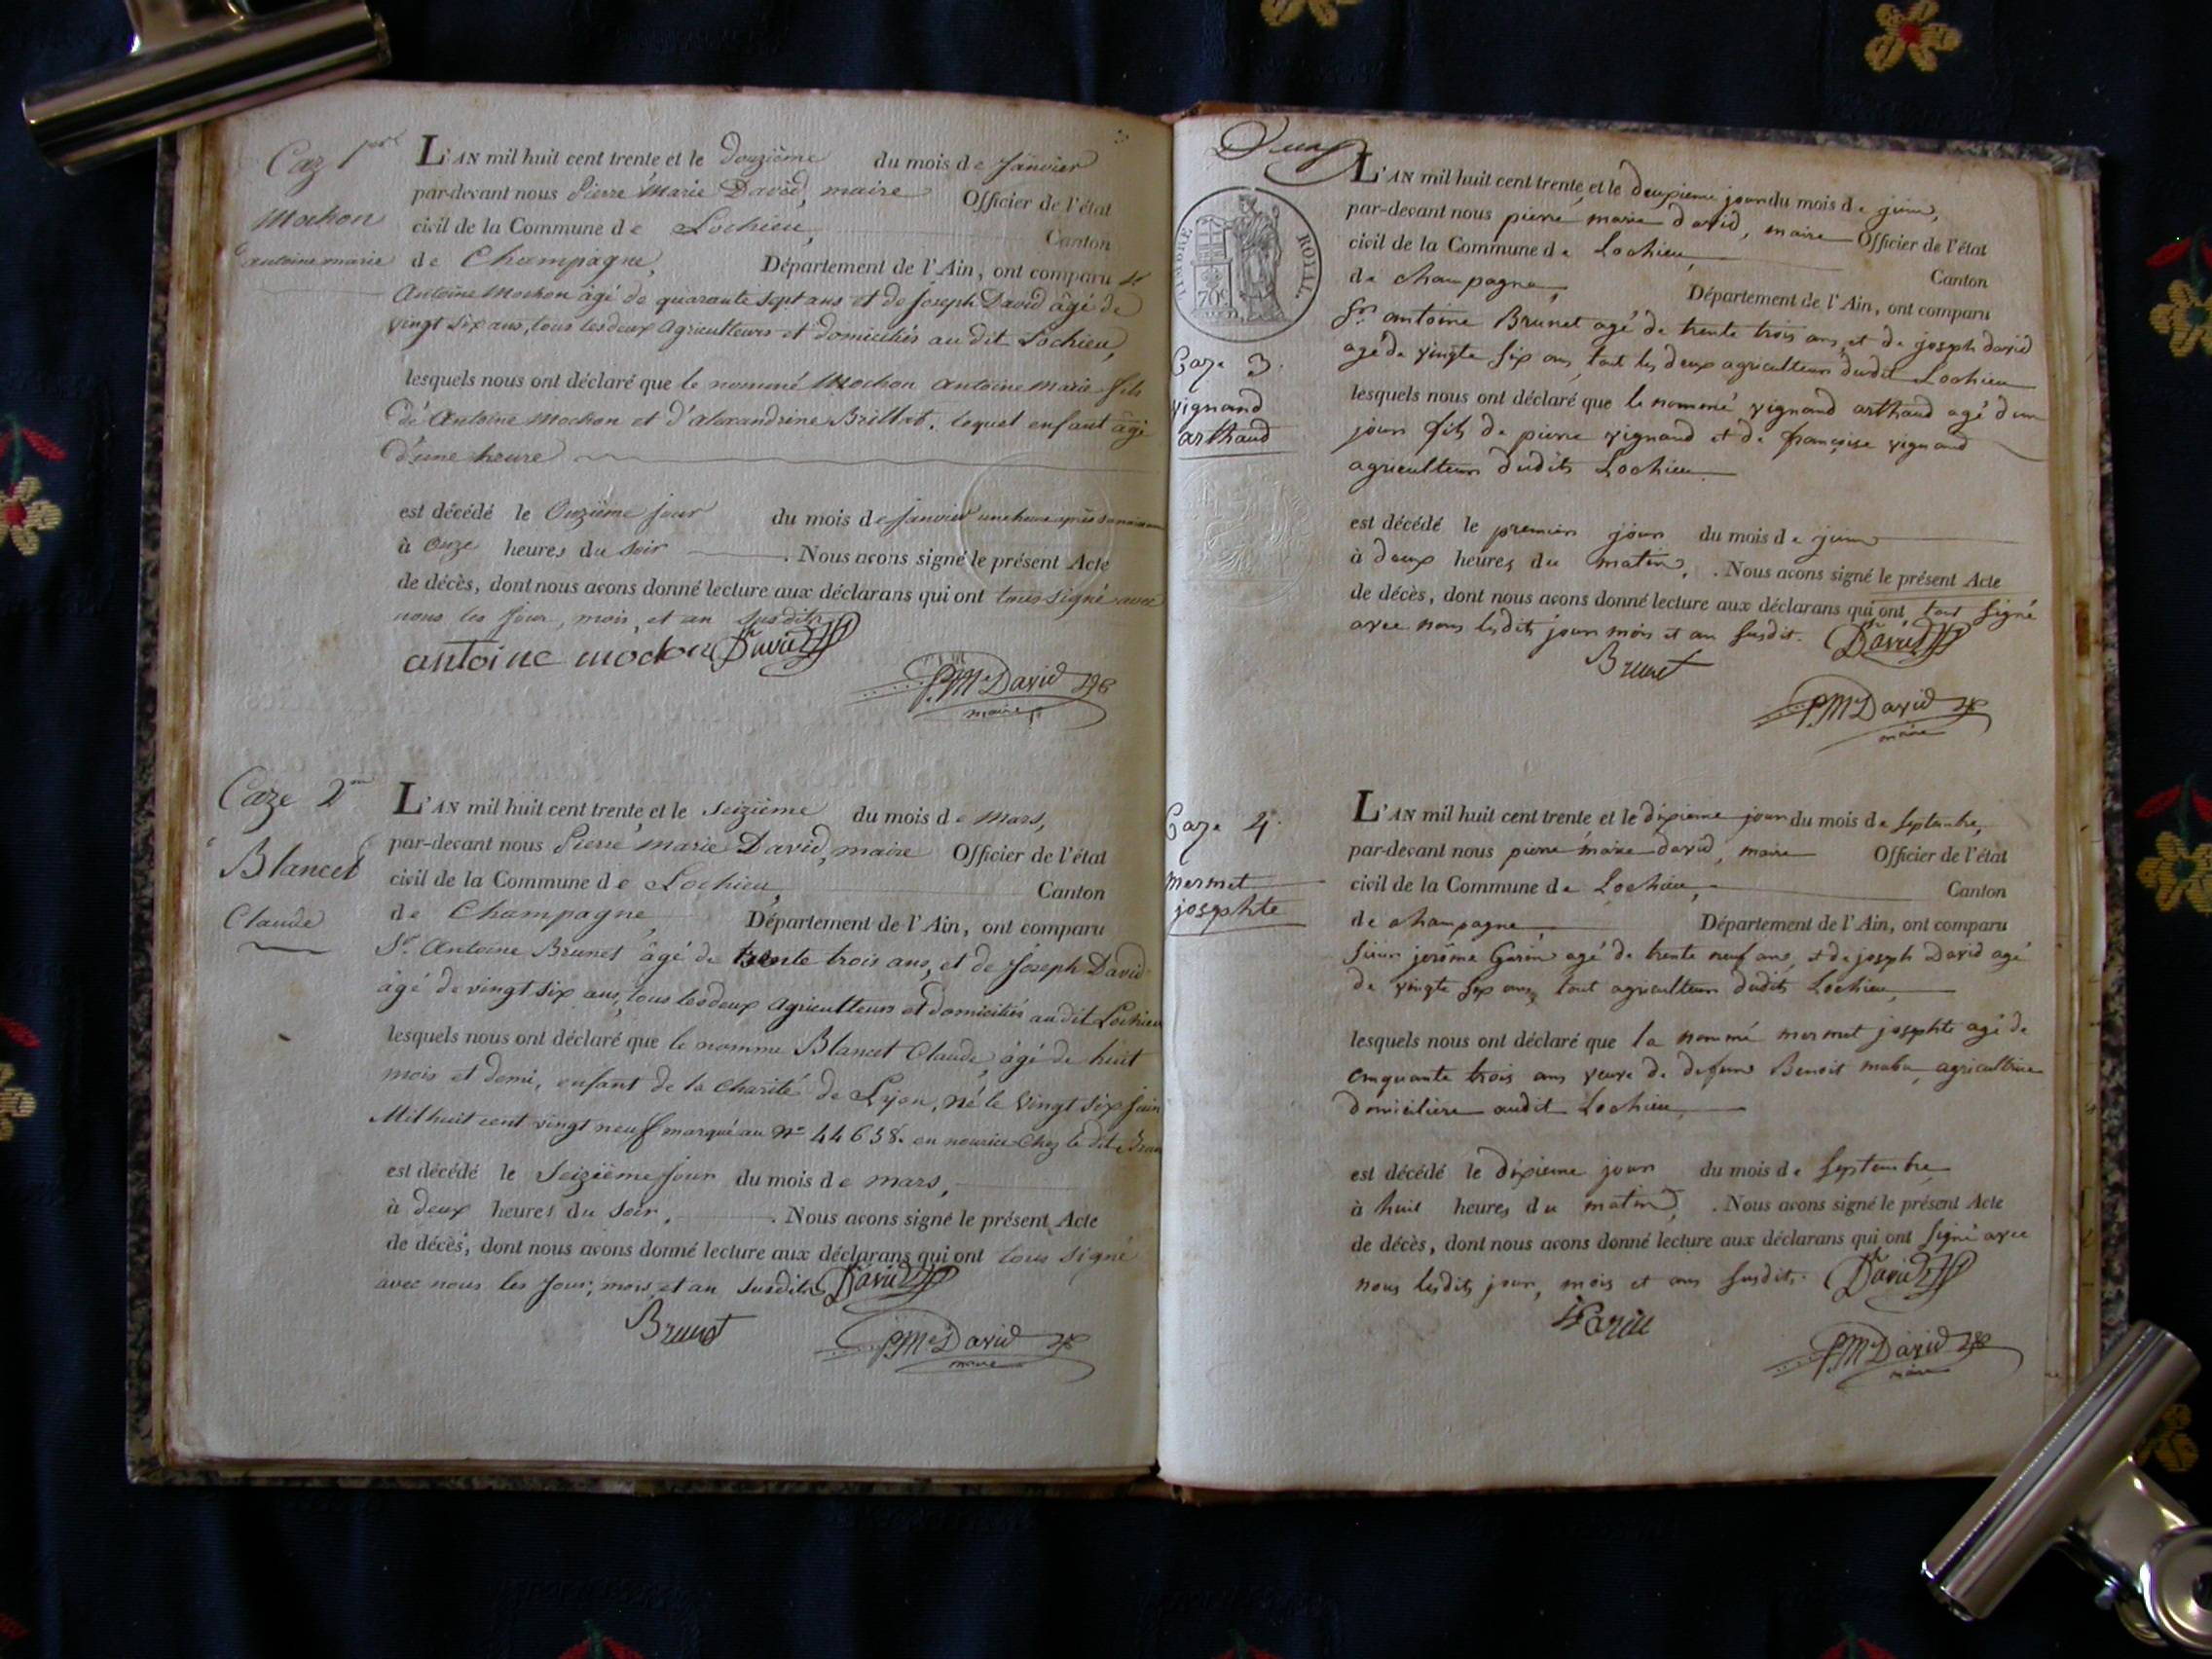 Caz 1er
Mochon
antoine marie
L'AN mil huit cent trente et le Douzième du mois de Janvier
par-devant nous Pierre Marie David, maire Officier de l'état
civil de la Commune de Lochieu, Canton
de Champagne, Département de l'Ain, ont comparu Sr
Antoine Mochon âgé de quarante sept ans et de Joseph David âgé de
vingt six ans, tous les deux agriculteurs et domiciliés au dit Lochieu,
lesquels nous ont déclaré que le nommé Mochon antoine marie fils
d'Antoine Mochon et d'alexandrine Brillat, lequel enfant âgé
d'une heure
est décédé le Onzième jour du mois de Janvier une heure après sa naissance
à Onze heures du soir . Nous avons signé le présent Acte
de décès, dont nous avons donné lecture aux déclarans qui ont tous signé avec
nous les jour, mois, et an susdits
antoine mochon David
P. Me David
maire
Caze 2me
Blancet
Claude
L'AN mil huit cent trente et le Seizième du mois de Mars,
par-devant nous Pierre marie David, maire Officier de l'état
civil de la Commune de Lochieu, Canton
de Champagne Département de l'Ain, ont comparu
Sr Antoine Brunet âgé de trente trois ans, et de Joseph David
âgé de vingt six ans, tous les deux agriculteurs et domiciliés au dit Lochieu
lesquels nous ont déclaré que le nomme Blancet Claude, âgé de huit
mois et demi, enfant de la Charité de Lyon, né le Vingt six juin
Mil huit cent vingt neuf marqué au No 44658. en nourice chez le dit Brunet
est décédé le Seizième jour du mois de mars,
à deux heures du soir, . Nous avons signé le présent Acte
de décès, dont nous avons donné lecture aux déclarans qui ont tous signé
avec nous les Jour, mois, et an susdits David
Brunet
P Me David
maire
Deux
TIMBRE ROYAL
70c
Caze 3.
vignand
arthaud
L'AN mil huit cent trente et le deuxieme jour du mois de juin,
par-devant nous pierre marie david, maire Officier de l'état
civil de la Commune de Lochieu, Canton
de champagne, Département de l'Ain, ont comparu
Sr antoine Brunet agé de trente trois ans et de joseph david
agé de vingte six ans, tout les deux agriculteur dudit Lochieu
lesquels nous ont déclaré que le nommé vignand arthaud agé dun
jour fils de pierre vignand et de françoise vignand
agriculteur dudits Lochieu
est décédé le premier jour du mois de juin
à deux heures du matin, . Nous avons signé le présent Acte
de décès, dont nous avons donné lecture aux déclarans qui ont tout signé
avec nous lesdits jour mois et an susdit. David
Brunet
P Me David
maire
Caze 4.
mermet
josephte
L'AN mil huit cent trente et le dixieme jour du mois de septembre,
par-devant nous pierre marie david, maire Officier de l'état
civil de la Commune de Lochieu, Canton
de champagne Département de l'Ain, ont comparu
sieur jerôme Garin agé de trente neuf ans, et de joseph David agé
de vingte six ans, tout agriculteur dudits Lochieu,
lesquels nous ont déclaré que la nommé mermet josephte agé de
cinquante trois ans veuve de defunt Benoit agricultrice
domiciliere audit Lochieu,
est décédé le dixieme jour du mois de septembre
à huit heures du matin, . Nous avons signé le présent Acte
de décès, dont nous avons donné lecture aux déclarans qui ont signé avec
nous lesdits jour, mois et ans susdits. David
Garin
P Me David
maire